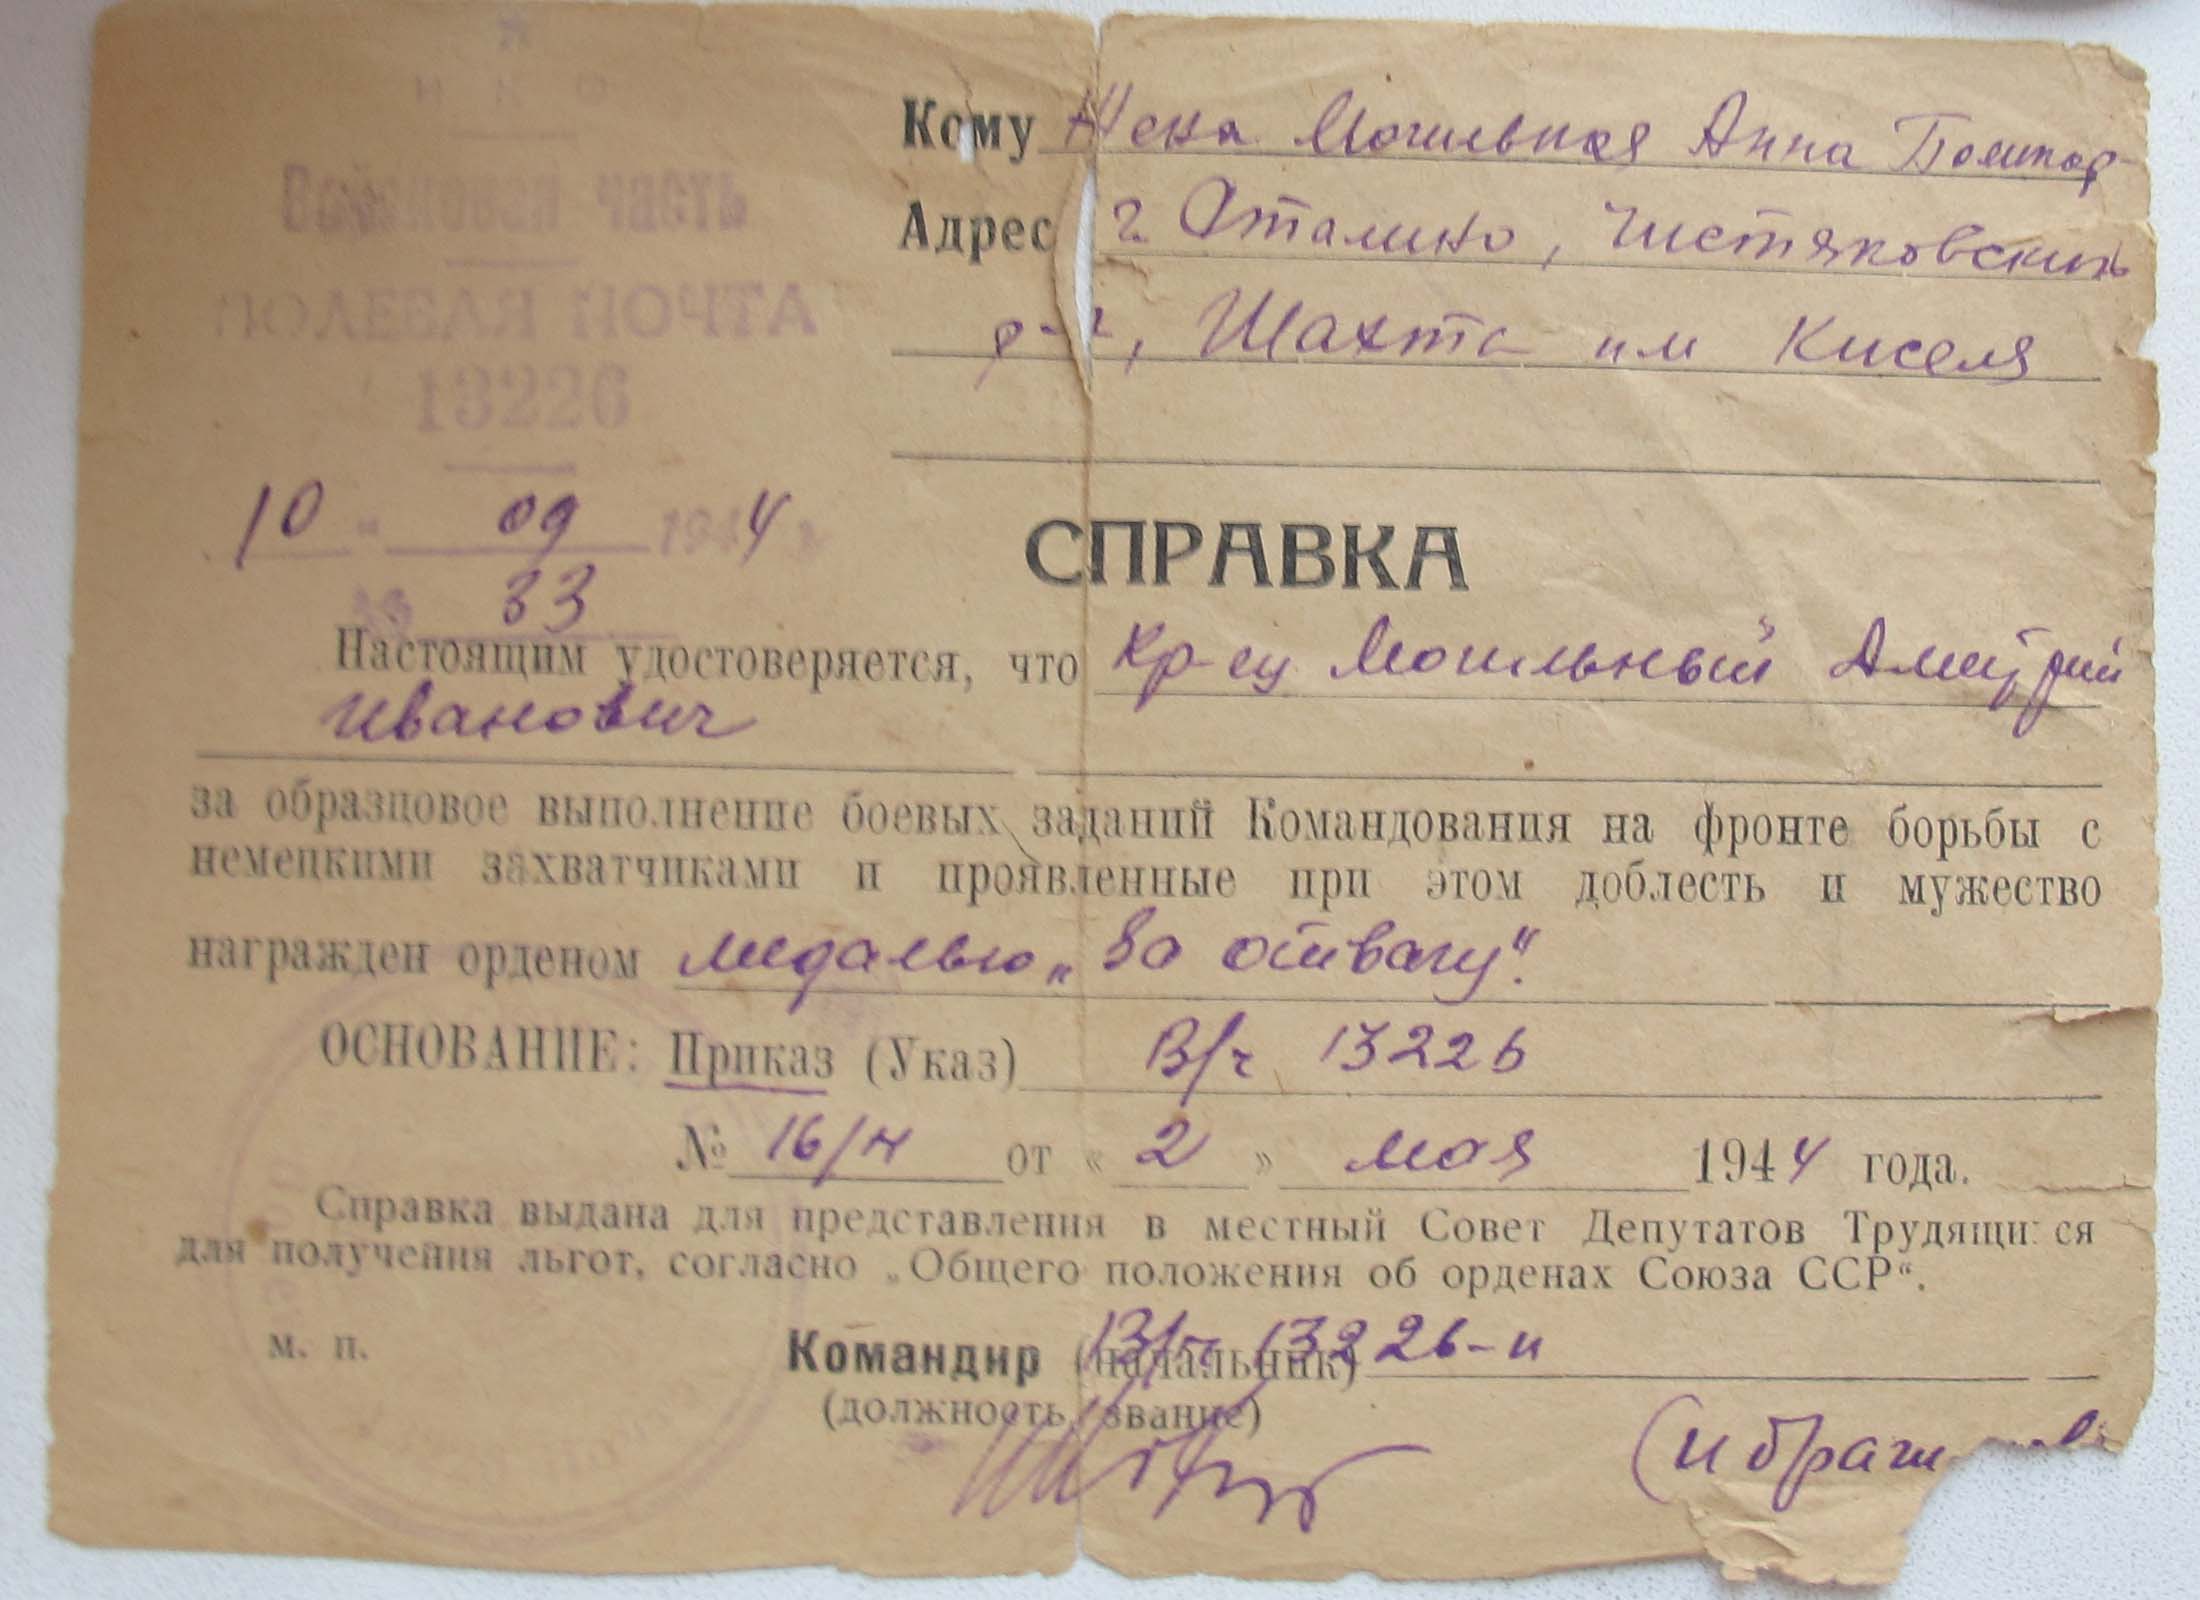 НКО
Войсковая часть
ПОЛЕВАЯ ПОЧТА
13226
10 " 09 1944 г
№ 33
Кому Жена Могильная Анна
Адрес г. Сталино, Чистяковский
р-н, Шахта им Киселя
СПРАВКА
Настоящим удостоверяется, что Кр-ец Могильный Дмитрий
Иванович
за образцовое выполнение боевых заданий Командования на фронте борьбы с
немецкими захватчиками и проявленные при этом доблесть и мужество
награжден орденом медалью „За отвагу".
ОСНОВАНИЕ: Приказ (Указ) В/ч 13226
№ 16/н от « 2 » мая 1944 года.
Справка выдана для представления в местный Совет Депутатов Трудящихся
для получения льгот, согласно „Общего положения об орденах Союза ССР".
м. п.
Командир (начальник) В/ч 13226-и
(должность, звание)